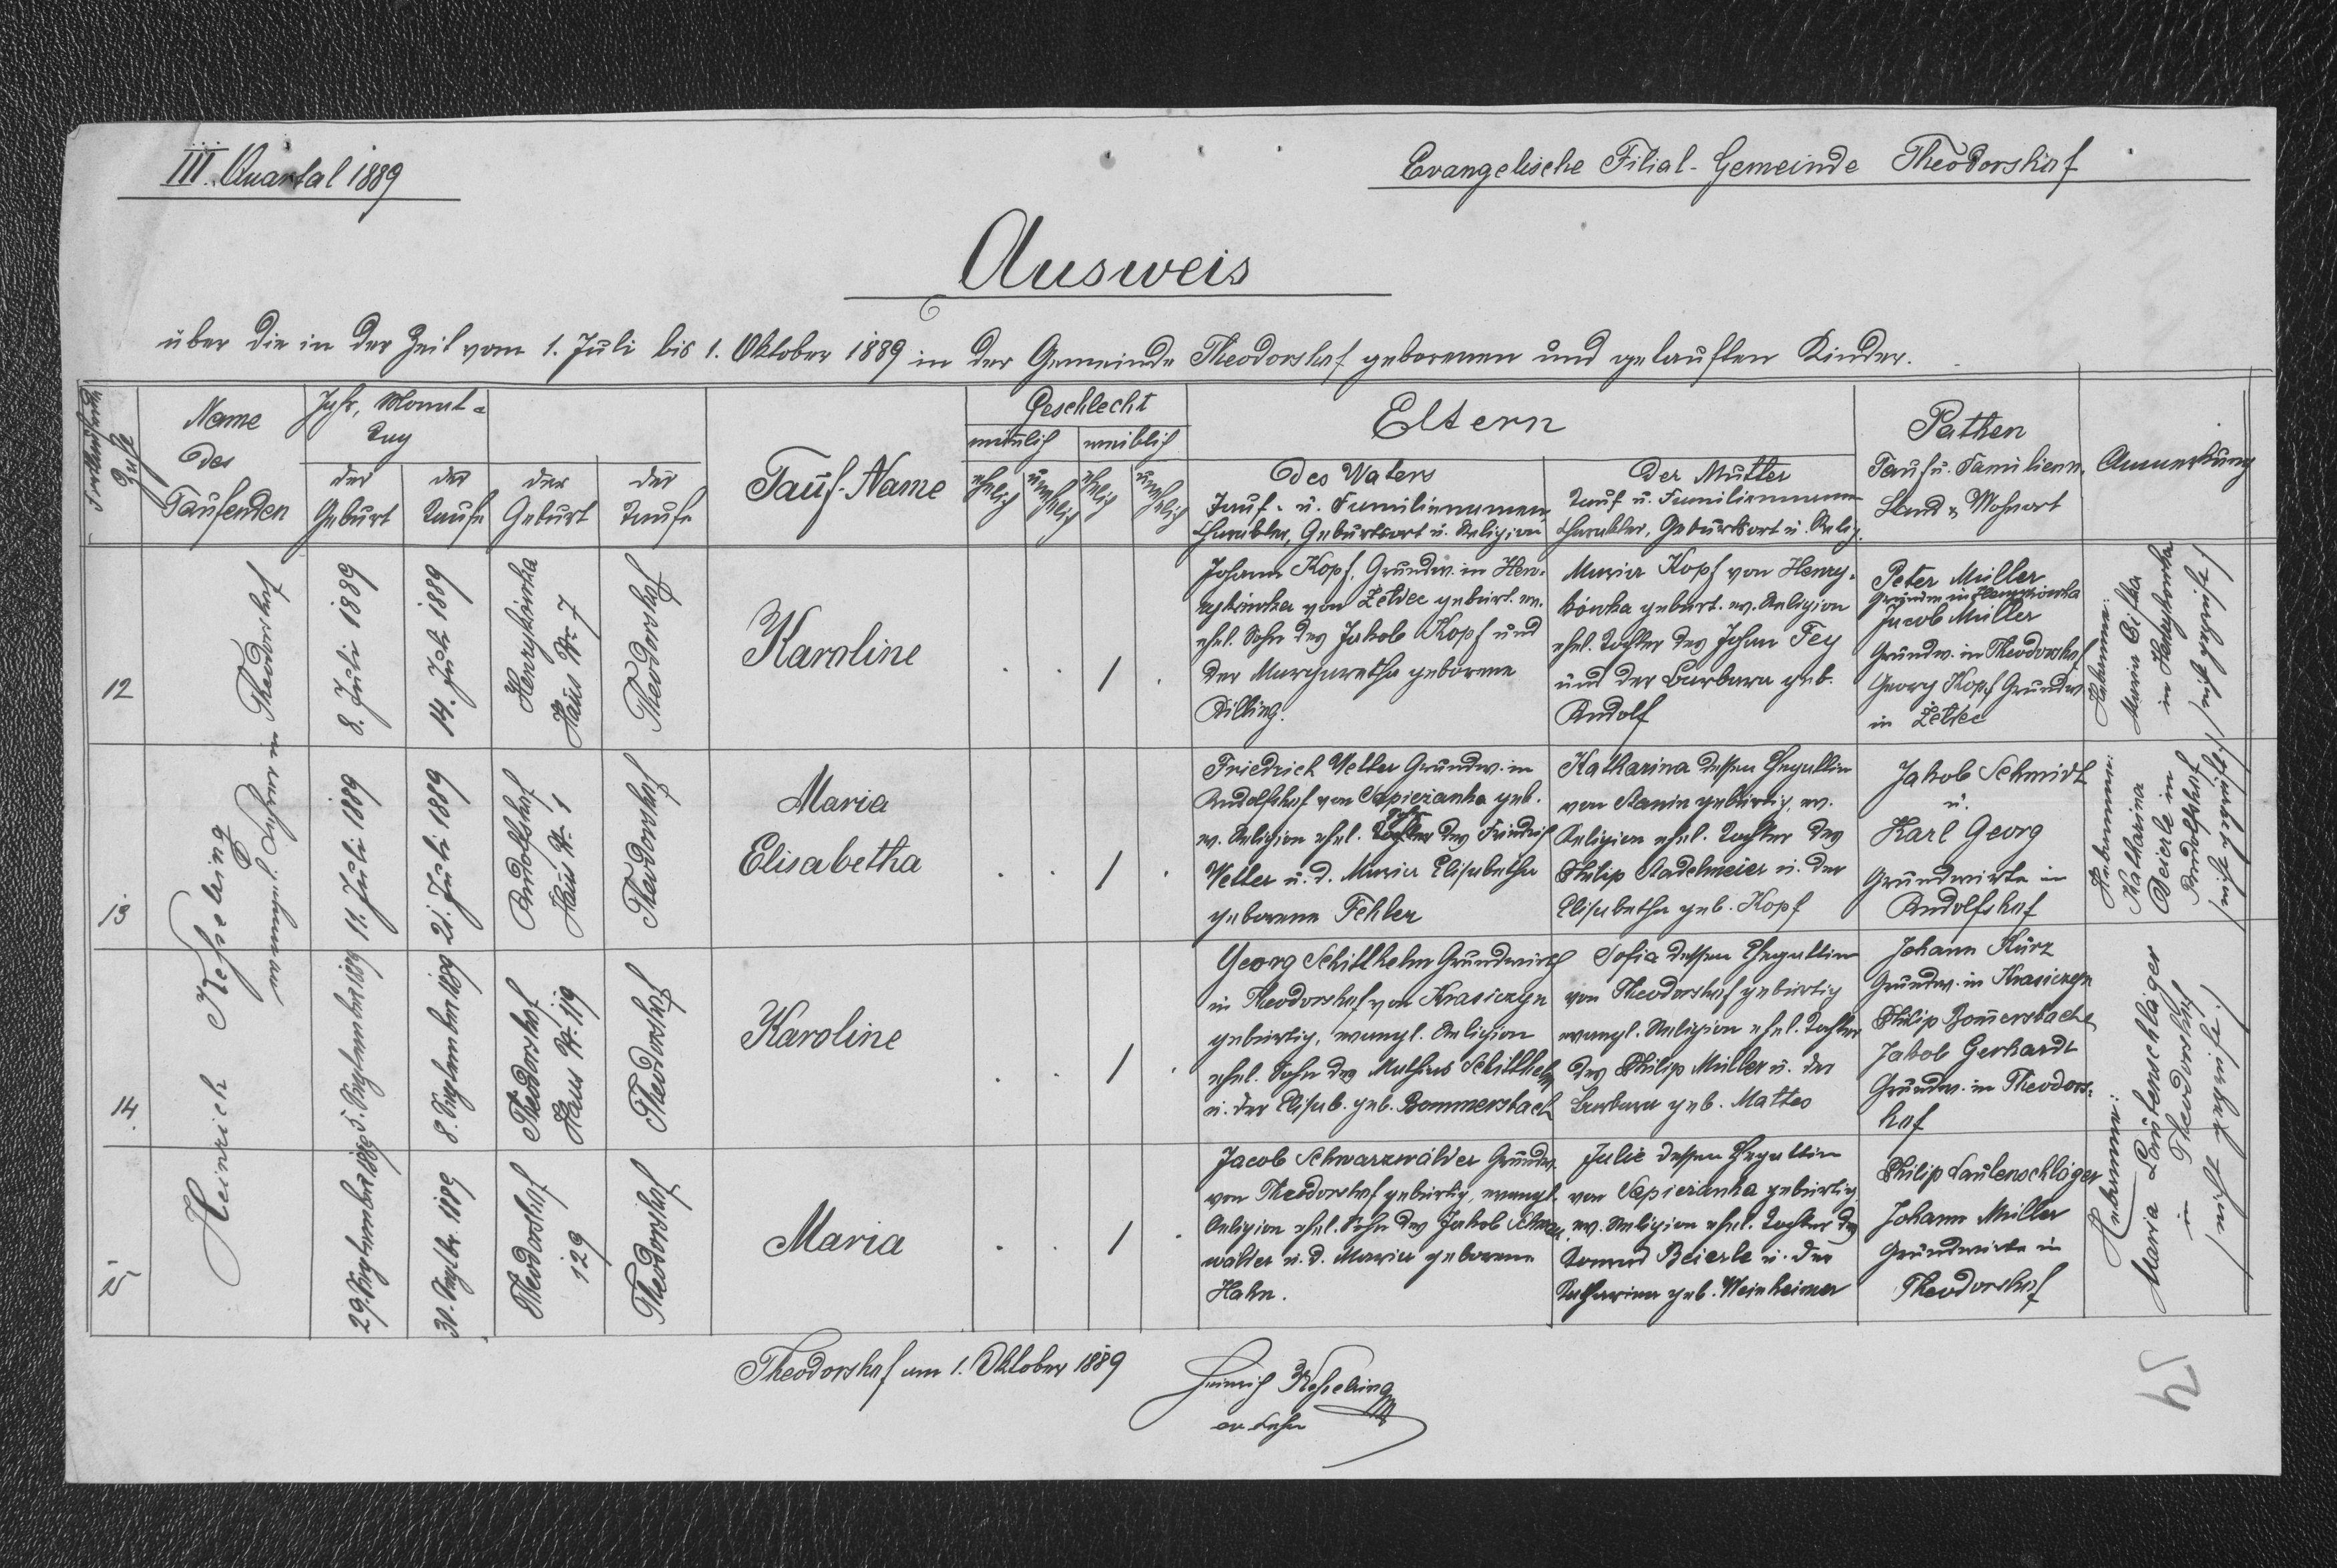 III. Quartal 1889
Evangelische Filial-Gemeinde Theodorshof
Ausweis
über die in der Zeit vom 1. Juli bis 1. Oktober 1889 in der Gemeinde Theodorshof geborenen und getauften Kinder.
Fortlaufende
Zahl
Name
des
Taufenden
Jahr, Monat-
Tag
der
Geburt
der
Taufe
der
Geburt
der
Taufe
Tauf-Name
Geschlecht
männlich
weiblich
ehelich
unehelich
ehelich
unehelich
Eltern
des Vaters
Tauf- u. Familiennamen
Charakter, Geburtsort u. Religion
der Mutter
Tauf u. Familiennamen
Charakter, Geburtsort u. Relig.
Pathen
Tauf u. Familienn.
Stand & Wohnort
Anmerkung
Heinrich Kesselring
evang. Lehrer in Theodorshof
12
8. Juli 1889
14. Juli 1889
Henrykówka
Haus Nr. 7
Theodorshof
Karoline
. . 1 .
Johann Kopf, Grundw. in Hen-
rykówka von Żełdec gebürt. ev.
ehel. Sohn des Jakob Kopf und
der Margaretha geborene
Killing.
Maria Kopf von Henry-
kówka gebürt. ev. Religion
ehel. Tochter des Johan Fey
und der Barbara geb.
Rudolf
Peter Müller
Grundw. in Henrykówka
Jacob Müller
Grundw. in Theodorshof
Georg Kopf Grundw.
in Żełdec
Hebamme:
Maria
in Henrykówka
/ nicht geprüft /
13
11. Juli 1889
21. Juli 1889
Rudolfshof
Haus Nr. 1
Theodorshof
Maria
Elisabetha
. . 1 .
Friedrich Vetter Grundw. in
Rudolfshof von Sapiezanka geb.
Sohn
ev. Religion ehel. Tochter des Friedrich
Vetter u. d. Maria Elisabetha
geborene Fehler
Katharina dessen Ehegattin
von Stanin gebürtig, ev.
Religion ehel. Tochter des
Philip Stadelmeier u. der
Elisabetha geb. Kopf
Jakob Schmidt
u.
Karl Georg
Grundwirte in
Rudolfshof
Hebamme:
Katharina
Beierle in
Rudolfshof
/ nicht geprüft /
14.
5. September 1889
8. September 1889
Theodorshof
Haus Nr. 119
Theodorshof
Karoline
. . 1 .
Georg Schitthelm Grundwirth
in Theodorshof von Krasiczyn
gebürtig, evangl. Religion
ehel. Sohn des Mathias Schitthelm
u. der Elisab. geb. Bommersbach
Sofia dessen Ehegattin
von Theodorshof gebürtig
evangl. Religion ehel. Tochter
des Philip Müller u. der
Barbara geb. Mattes
Johann Kurz
Grundw. in Krasiczyn
Philip Bom̄ersbach
Jakob Gerhardt
Grundw. in Theodors-
hof
Hebamme:
Maria Lautenschläger
in
Theodorshof
/ nicht geprüft /
15
29. September 1889
30. Septbr. 1889
Theodorshof
129
Theodorshof
Maria
. . 1 .
Jacob Schwarzwälder Grundw.
von Theodorshof gebürtig, evangl.
Religion ehel. Sohn des Jakob Schwarz-
wälder u. d. Maria geborene
Hahn.
Julie dessen Ehegattin
von Sapiezanka gebürtig,
ev. Religion ehel. Tochter des
Konrad Beierle u. der
Katharina geb. Weinheimer
Philip Lautenschläger
Johann Müller
Grundwirte in
Theodorshof
Theodorshof am 1. Oktober 1889
Heinrich Kesselring
ev. Lehrer